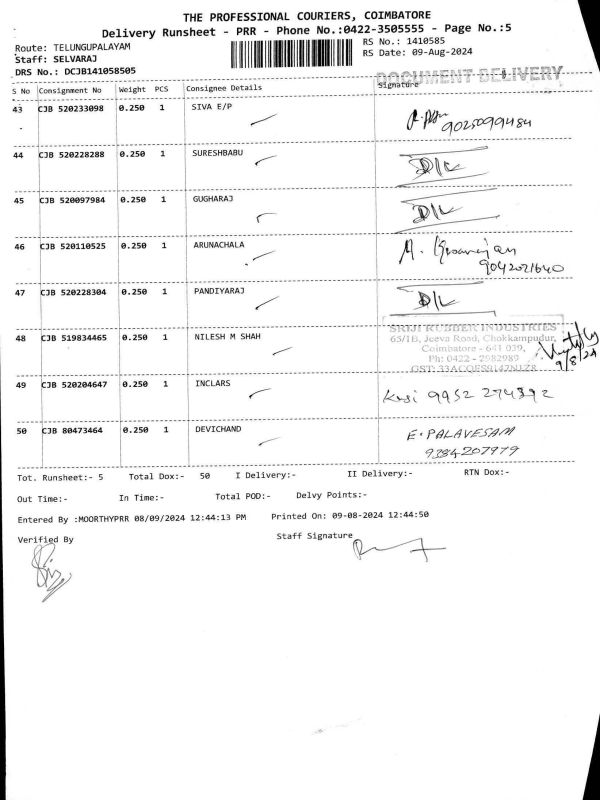 THE PROFESSIONAL COURIERS, COIMBATORE
Delivery Runsheet - PRR - Phone No.:0422-3505555 - Page No.:5
Route: TELUNGUPALAYAM RS No.: 1410585
Staff: SELVARAJ RS Date: 09-Aug-2024
DRS No.: DCJB141058505
DOCUMENT DELIVERY
S No Consignment No Weight PCS Consignee Details Signature
43 CJB 520233098 0.250 1 SIVA E/P
9025099484
44 CJB 520228288 0.250 1 SURESHBABU
D/L
45 CJB 520097984 0.250 1 GUGHARAJ
D/L
46 CJB 520110525 0.250 1 ARUNACHALA M.
9042021640
47 CJB 520228304 0.250 1 PANDIYARAJ
D/L
SRIJI RUBBER INDUSTRIES
48 CJB 519834465 0.250 1 NILESH M SHAH 65/1B, Jeeva Road, Chokkampudur,
Coimbatore - 641 039,
Ph: 0422 - 2982989
9/8/24
49 CJB 520204647 0.250 1 INCLARS
50 CJB 80473464 0.250 1 DEVICHAND E. PALAVESAM
9384207979
Tot. Runsheet:- 5 Total Dox:- 50 I Delivery:- II Delivery:- RTN Dox:-
Out Time:- In Time:- Total POD:- Delvy Points:-
Entered By :MOORTHYPRR 08/09/2024 12:44:13 PM Printed On: 09-08-2024 12:44:50
Verified By Staff Signature